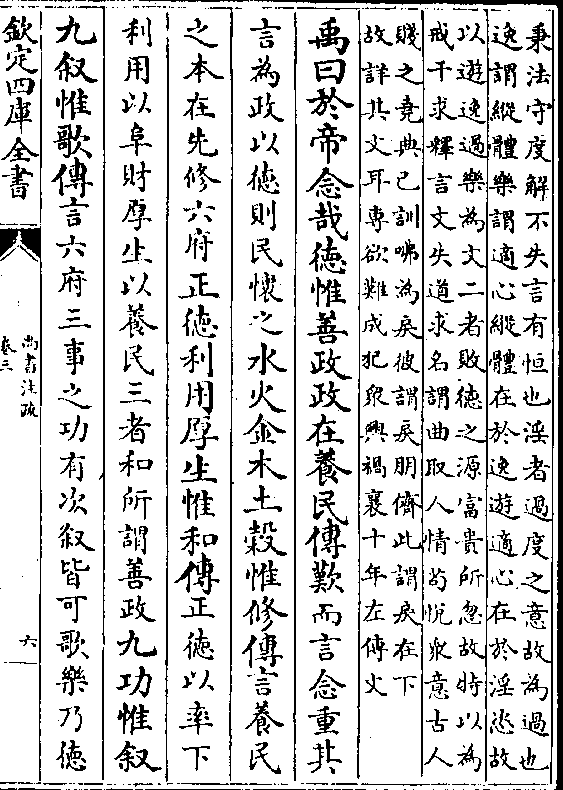 秉法守度解不失言有恒也淫者過度之意故為過也
逸謂縱體樂謂適心縱體在於逸遊適心在於淫恣故
以遊逸過樂為文二者敗德之源富貴所忽故特以為
戒干求釋言文失道求名謂曲取人情苟悅衆意古人
賤之堯典已訓咈為戾彼謂戾朋儕此謂戾在下
故詳其文耳專欲難成犯衆興禍襄十年左傳文
禹曰於帝念哉德惟善政政在養民傳歎而言念重其
言為政以德則民懷之水火金木土榖惟修傳言養民
之本在先修六府正德利用厚生惟和傳正德以率下
利用以阜財厚生以養民三者和所謂善政九功惟叙
九叙惟歌傳言六府三事之功有次叙皆可歌樂乃德
欽定四庫全書
尚書注疏
卷三
六